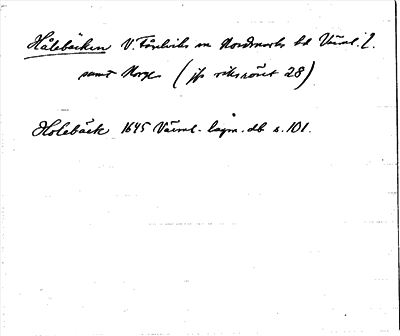 Hålebäcken V. Fågelviks sn Nordmarks hd Värml. l.
samt Norge (jfr riksröset 28)
Holebäck 1645 Värml. lagm. db s. 101.